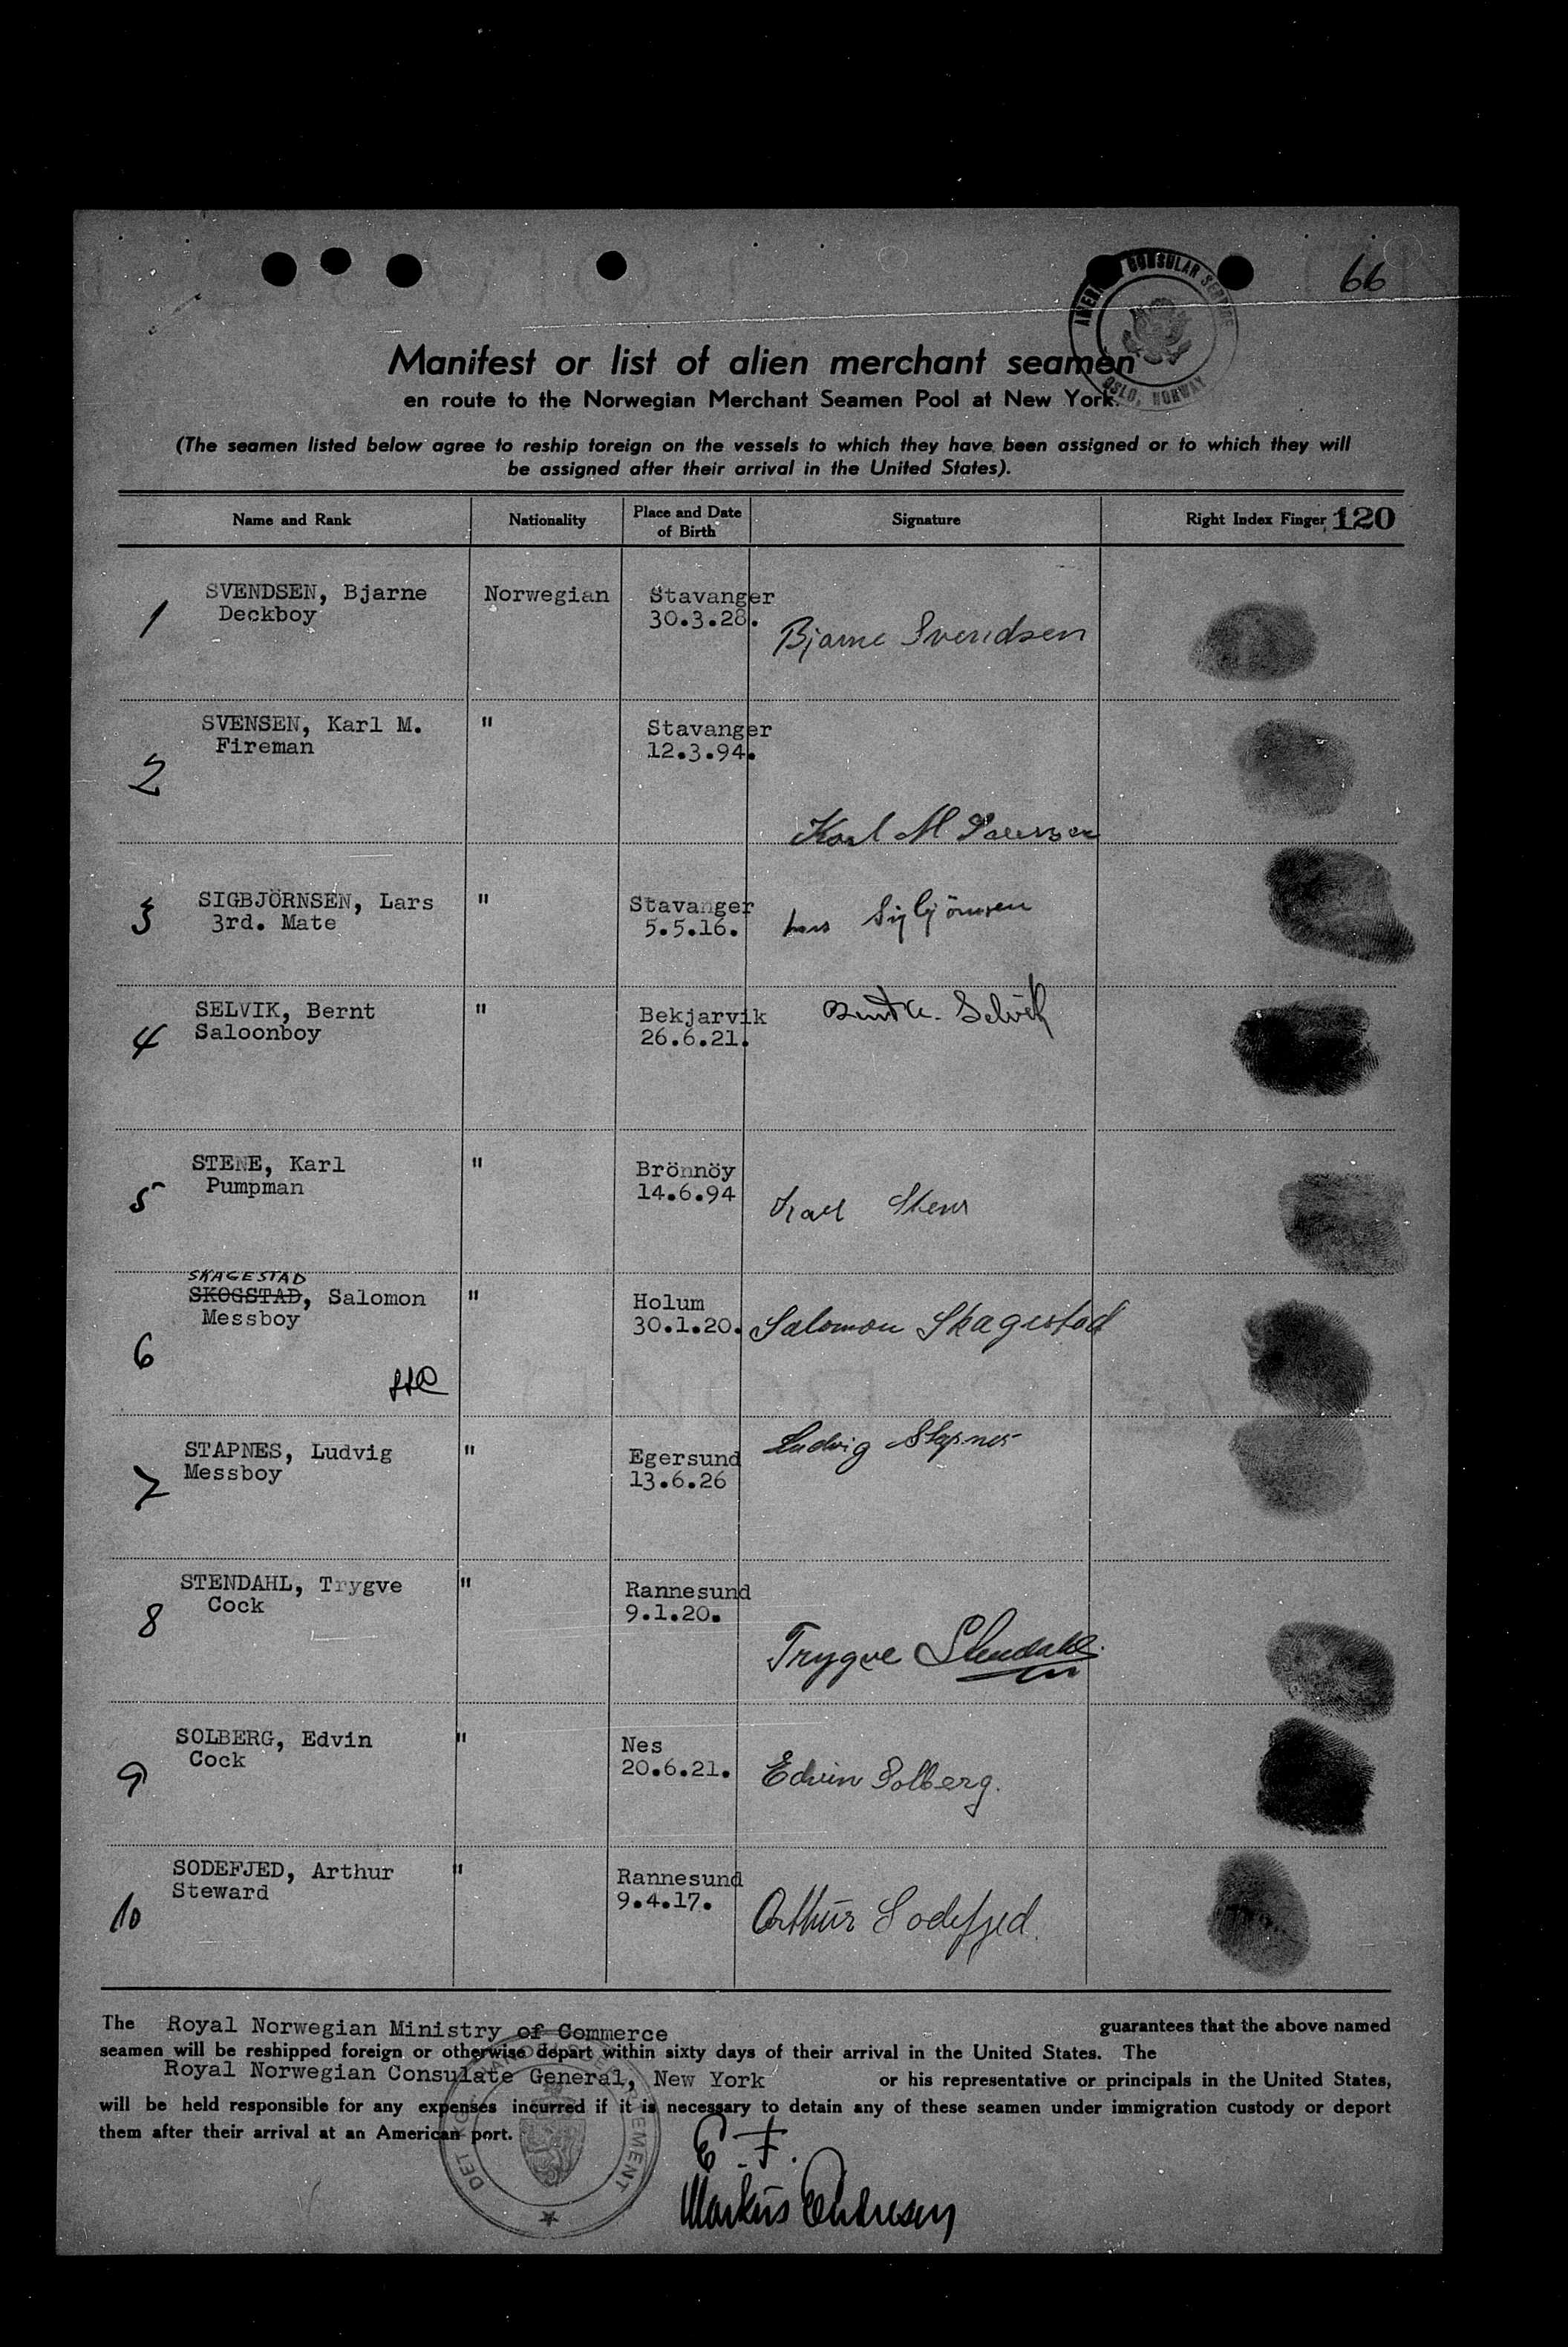 66
AMERICAN CONSULAR SERVICE
OSLO, NORWAY
Manifest or list of alien merchant seamen
en route to the Norwegian Merchant Seamen Pool at New York.
(The seamen listed below agree to reship foreign on the vessels to which they have been assigned or to which they will
be assigned after their arrival in the United States).
Name and Rank Nationality Place and Date of Birth Signature Right Index Finger 120
1 SVENDSEN, Bjarne Norwegian Stavanger
Deckboy 30.3.28. Bjarne Svendsen
SVENSEN, Karl M. " Stavanger
Fireman 12.3.94.
2
Karl M Svensen
SIGBJÖRNSEN, Lars " Stavanger Lars Sigbjörnsen
3 3rd. Mate 5.5.16.
SELVIK, Bernt " Bekjarvik Bernt Selvik
4 Saloonboy 26.6.21.
STENE, Karl " Brönnöy
5 Pumpman 14.6.94 Karl Stene
SKAGESTAD
SKOGSTAD, Salomon " Holum
Messboy 30.1.20. Salomon Skagestad
6
STAPNES, Ludvig " Egersund Ludvig Stapnes
7 Messboy 13.6.26
STENDAHL, Trygve " Rannesund
8 Cock 9.1.20.
Trygve Stendahl
SOLBERG, Edvin " Nes
9 Cock 20.6.21. Edvin Solberg.
SODEFJED, Arthur " Rannesund
10 Steward 9.4.17. Arthur Sodefjed.
The Royal Norwegian Ministry of Commerce guarantees that the above named
seamen will be reshipped foreign or otherwise depart within sixty days of their arrival in the United States. The
Royal Norwegian Consulate General, New York or his representative or principals in the United States,
will be held responsible for any expenses incurred if it is necessary to detain any of these seamen under immigration custody or deport
them after their arrival at an American port.
E. F.
Markus Andresen